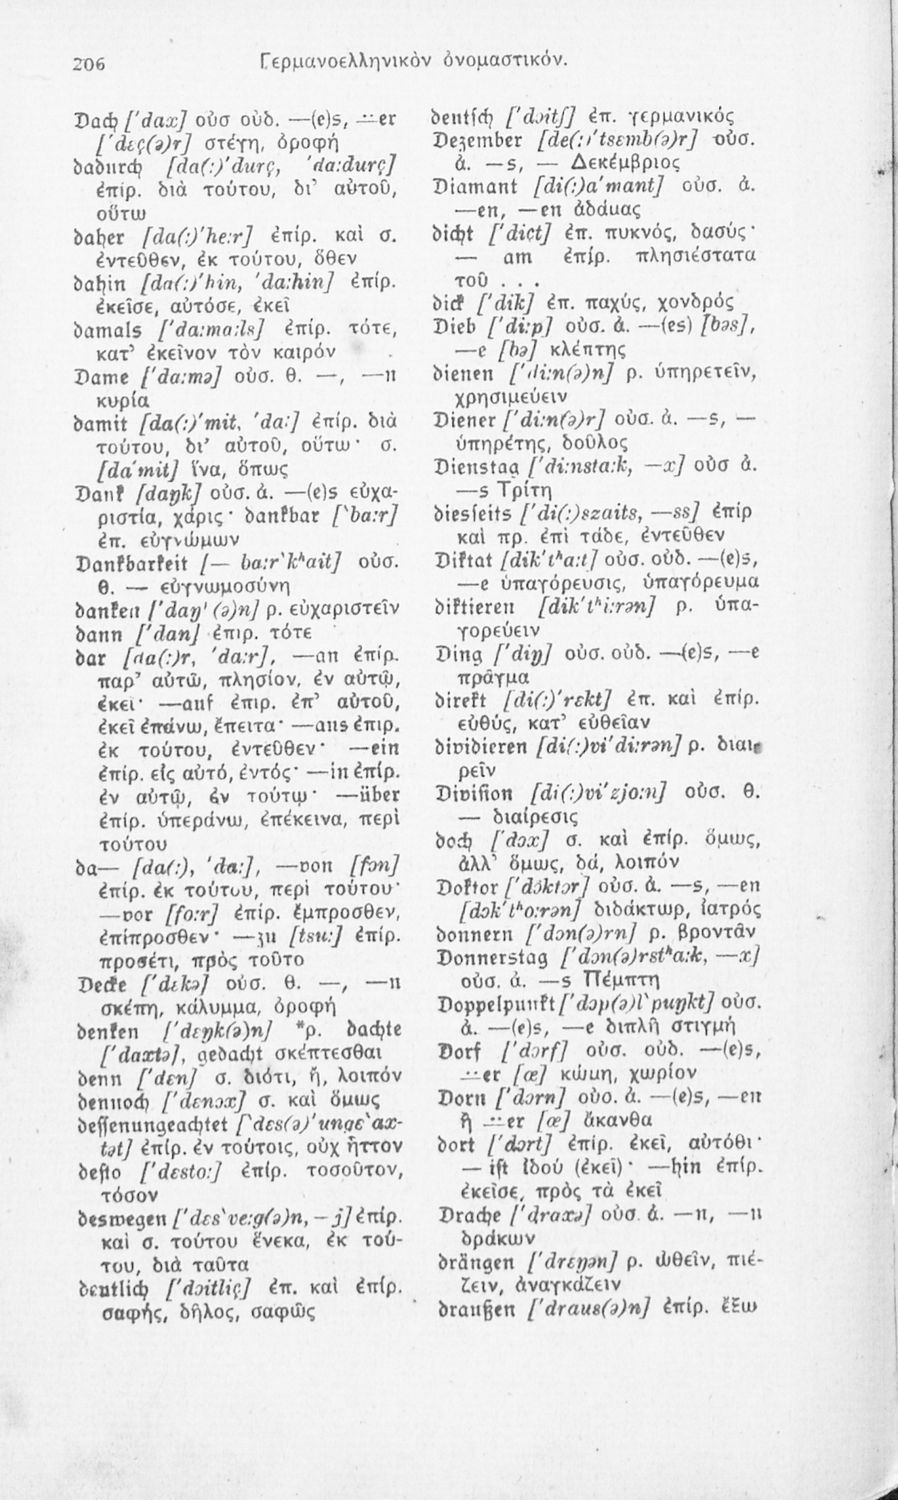 206
Γερμανοελληνικὸν ὀνομαστικόν.
Dach ['dax] οὐσ οὐδ. —(e)s, —̈er
['dɛç(ə)r] στέγη, ὀροφή
dadurch [da(:)'durç, 'da:durç]
ἐπίρ. διὰ τούτου, δι' αὐτοῦ,
οὕτω
daher [da(:)'he:r] ἐπίρ. καὶ σ.
ἐντεῦθεν, ἐκ τούτου, ὅθεν
dahin [da(:)'hin, 'da:hin] ἐπίρ.
ἐκεῖσε, αὐτόσε, ἐκεῖ
damals ['da:ma:ls] ἐπίρ. τότε,
κατ' ἐκεῖνον τὸν καιρόν
Dame ['da:mə] οὐσ. θ. —, —n
κυρία
damit [da(:)'mit, 'da:] ἐπίρ. διὰ
τούτου, δι' αὐτοῦ, οὕτω· σ.
[da'mit] ἵνα, ὅπως
Dank [daŋk] οὐσ. ἀ. —(e)s εὐχα-
ριστία, χάρις· dankbar [`ba:r]
ἐπ. εὐγνώμων
Dankbarkeit [— ba:r'kʰait] οὐσ.
θ. — εὐγνωμοσύνη
danken ['daŋ'(ə)n] ρ. εὐχαριστεῖν
dann ['dan] ἐπιρ. τότε
dar [da(:)r, 'da:r], —an ἐπίρ.
παρ' αὐτῶ, πλησίον, ἐν αὐτῷ,
ἐκεῖ· —auf ἐπιρ. ἐπ' αὐτοῦ,
ἐκεῖ ἐπάνω, ἔπειτα· —aus ἐπιρ.
ἐκ τούτου, ἐντεῦθεν· —ein
ἐπίρ. εἰς αὐτό, ἐντός· —in ἐπίρ.
ἐν αὐτῷ, ἐν τούτῳ· —über
ἐπίρ. ὑπεράνω, ἐπέκεινα, περὶ
τούτου
da— [da(:), 'da:], —von [fɔn]
ἐπίρ. ἐκ τούτου, περὶ τούτου·
—vor [fo:r] ἐπίρ. ἔμπροσθεν,
ἐπίπροσθεν· —zu [tsu:] ἐπίρ.
προσέτι, πρὸς τοῦτο
Decke ['dɛkə] οὐσ. θ. —, —n
σκέπη, κάλυμμα, ὀροφή
denken ['dɛŋk(ə)n] *ρ. dachte
['daxtə], gedacht σκέπτεσθαι
denn ['dɛn] σ. διότι, ἤ, λοιπόν
dennoch ['dɛnɔx] σ. καὶ ὅμως
dessenungeachtet [`dɛs(ə)'ungə`ax-
tət] ἐπίρ. ἐν τούτοις, οὐχ ἧττον
desto ['dɛsto:] ἐπίρ. τοσοῦτον,
τόσον
deswegen ['dɛs`ve:g(ə)n, — j] ἐπίρ.
καὶ σ. τούτου ἕνεκα, ἐκ τού-
του, διὰ ταῦτα
deutlich ['dɔitliç] ἐπ. καὶ ἐπίρ.
σαφής, δῆλος, σαφῶς
deutsch ['dɔitʃ] ἐπ. γερμανικός
Dezember [de(:)'tsɛmb(ə)r] οὐσ.
ἀ. —s, — Δεκέμβριος
Diamant [di(:)a'mant] οὐσ. ἀ.
—en, —en ἀδάμας
dicht ['diçt] ἐπ. πυκνός, δασύς·
— am ἐπίρ. πλησιέστατα
τοῦ . . .
dick ['dik] ἐπ. παχύς, χονδρός
Dieb ['di:p] οὐσ. ἀ. —(es) [bəs],
—e [bə] κλέπτης
dienen ['di:n(ə)n] ρ. ὑπηρετεῖν,
χρησιμεύειν
Diener ['di:n(ə)r] οὐσ. ἀ. —s, —
ὑπηρέτης, δοῦλος
Dienstag ['di:nsta:k, —x] οὐσ ἀ.
—s Τρίτη
diesseits ['di(:)szaits, —ss] ἐπίρ
καὶ πρ. ἐπὶ τάδε, ἐντεῦθεν
Diktat [dik'tʰa:t] οὐσ. οὐδ. —(e)s,
—e ὑπαγόρευσις, ὑπαγόρευμα
diktieren [dik'tʰi:rən] ρ. ὑπα-
γορεύειν
Ding ['diŋ] οὐσ. οὐδ. —(e)s, —e
πρᾶγμα
direkt [di(:)'rɛkt] ἐπ. καὶ ἐπίρ.
εὐθύς, κατ' εὐθεῖαν
dividieren [di(:)vi'di:rən] ρ. διαι
ρεῖν
Division [di(:)vi'zjo:n] οὐσ. θ.
— διαίρεσις
doch ['dɔx] σ. καὶ ἐπίρ. ὅμως,
ἀλλ' ὅμως, δά, λοιπόν
Doktor ['dɔktɔr] οὐσ. ἀ. —s, —en
[dɔk'tʰo:rən] διδάκτωρ, ἰατρός
donnern ['dɔn(ə)rn] ρ. βροντᾶν
Donnerstag ['dɔn(ə)rstʰa:k, —x]
οὐσ. ἀ. —s Πέμπτη
Doppelpunkt ['dɔp(ə)l`puŋkt] οὐσ.
ἀ. —(e)s, —e διπλῆ στιγμή
Dorf ['dɔrf] οὐσ. οὐδ. —(e)s,
—̈er [œ] κώμη, χωρίον
Dorn ['dɔrn] οὐσ. ἀ. —(e)s, —en
ἢ —̈er [œ] ἄκανθα
dort ['dɔrt] ἐπίρ. ἐκεῖ, αὐτόθι·
— ist ἰδοὺ (ἐκεῖ)· —hin ἐπίρ.
ἐκεῖσε, πρὸς τὰ ἐκεῖ
Drache ['draxə] οὐσ. ἀ. —n, —n
δράκων
drängen ['drɛŋən] ρ. ὠθεῖν, πιέ-
ζειν, ἀναγκάζειν
draußen ['draus(ə)n] ἐπίρ. ἔξω